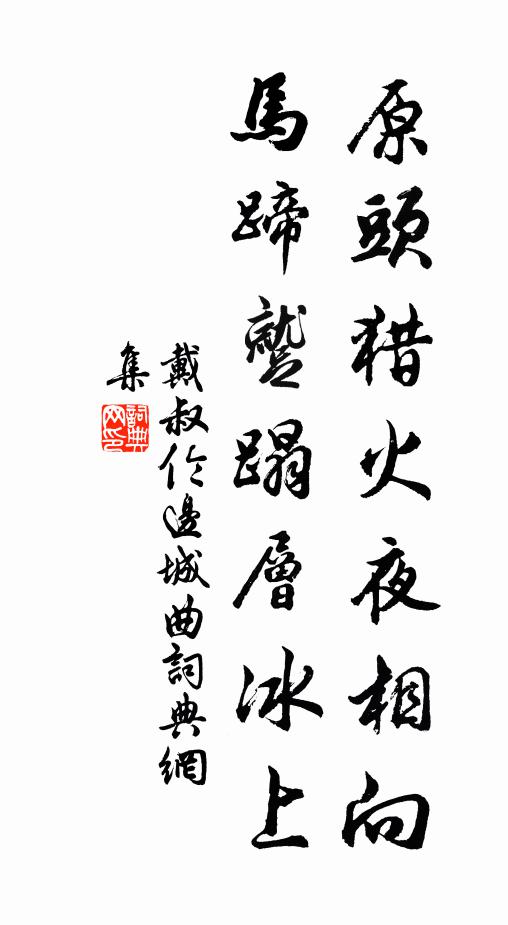 原頭猎火夜相向
馬蹄蹵蹋層冰上
戴叔伦邊城曲詞典網
集
詞典
网印